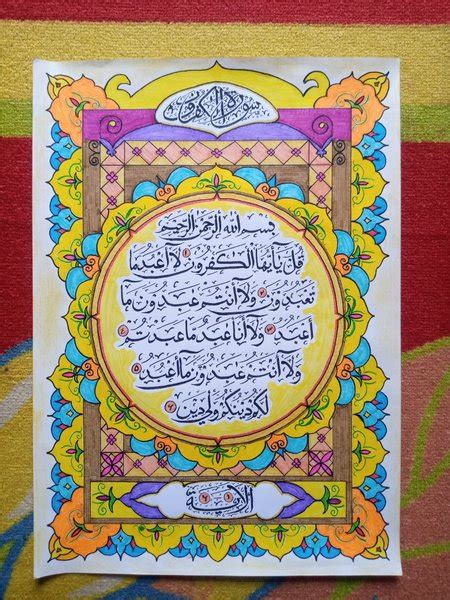 سورة الكفرون
بسم الله الرحمن الرحيم
قل يأيها الكفرون ١ لا أعبد ما
تعبدون ٢ ولا أنتم عبدون ما
أعبد ٣ ولا أنا عابد ما عبدتم ٤
ولا أنتم عبدون ما أعبد ٥
لكم دينكم ولي دين ٦
الآية ١ ٦